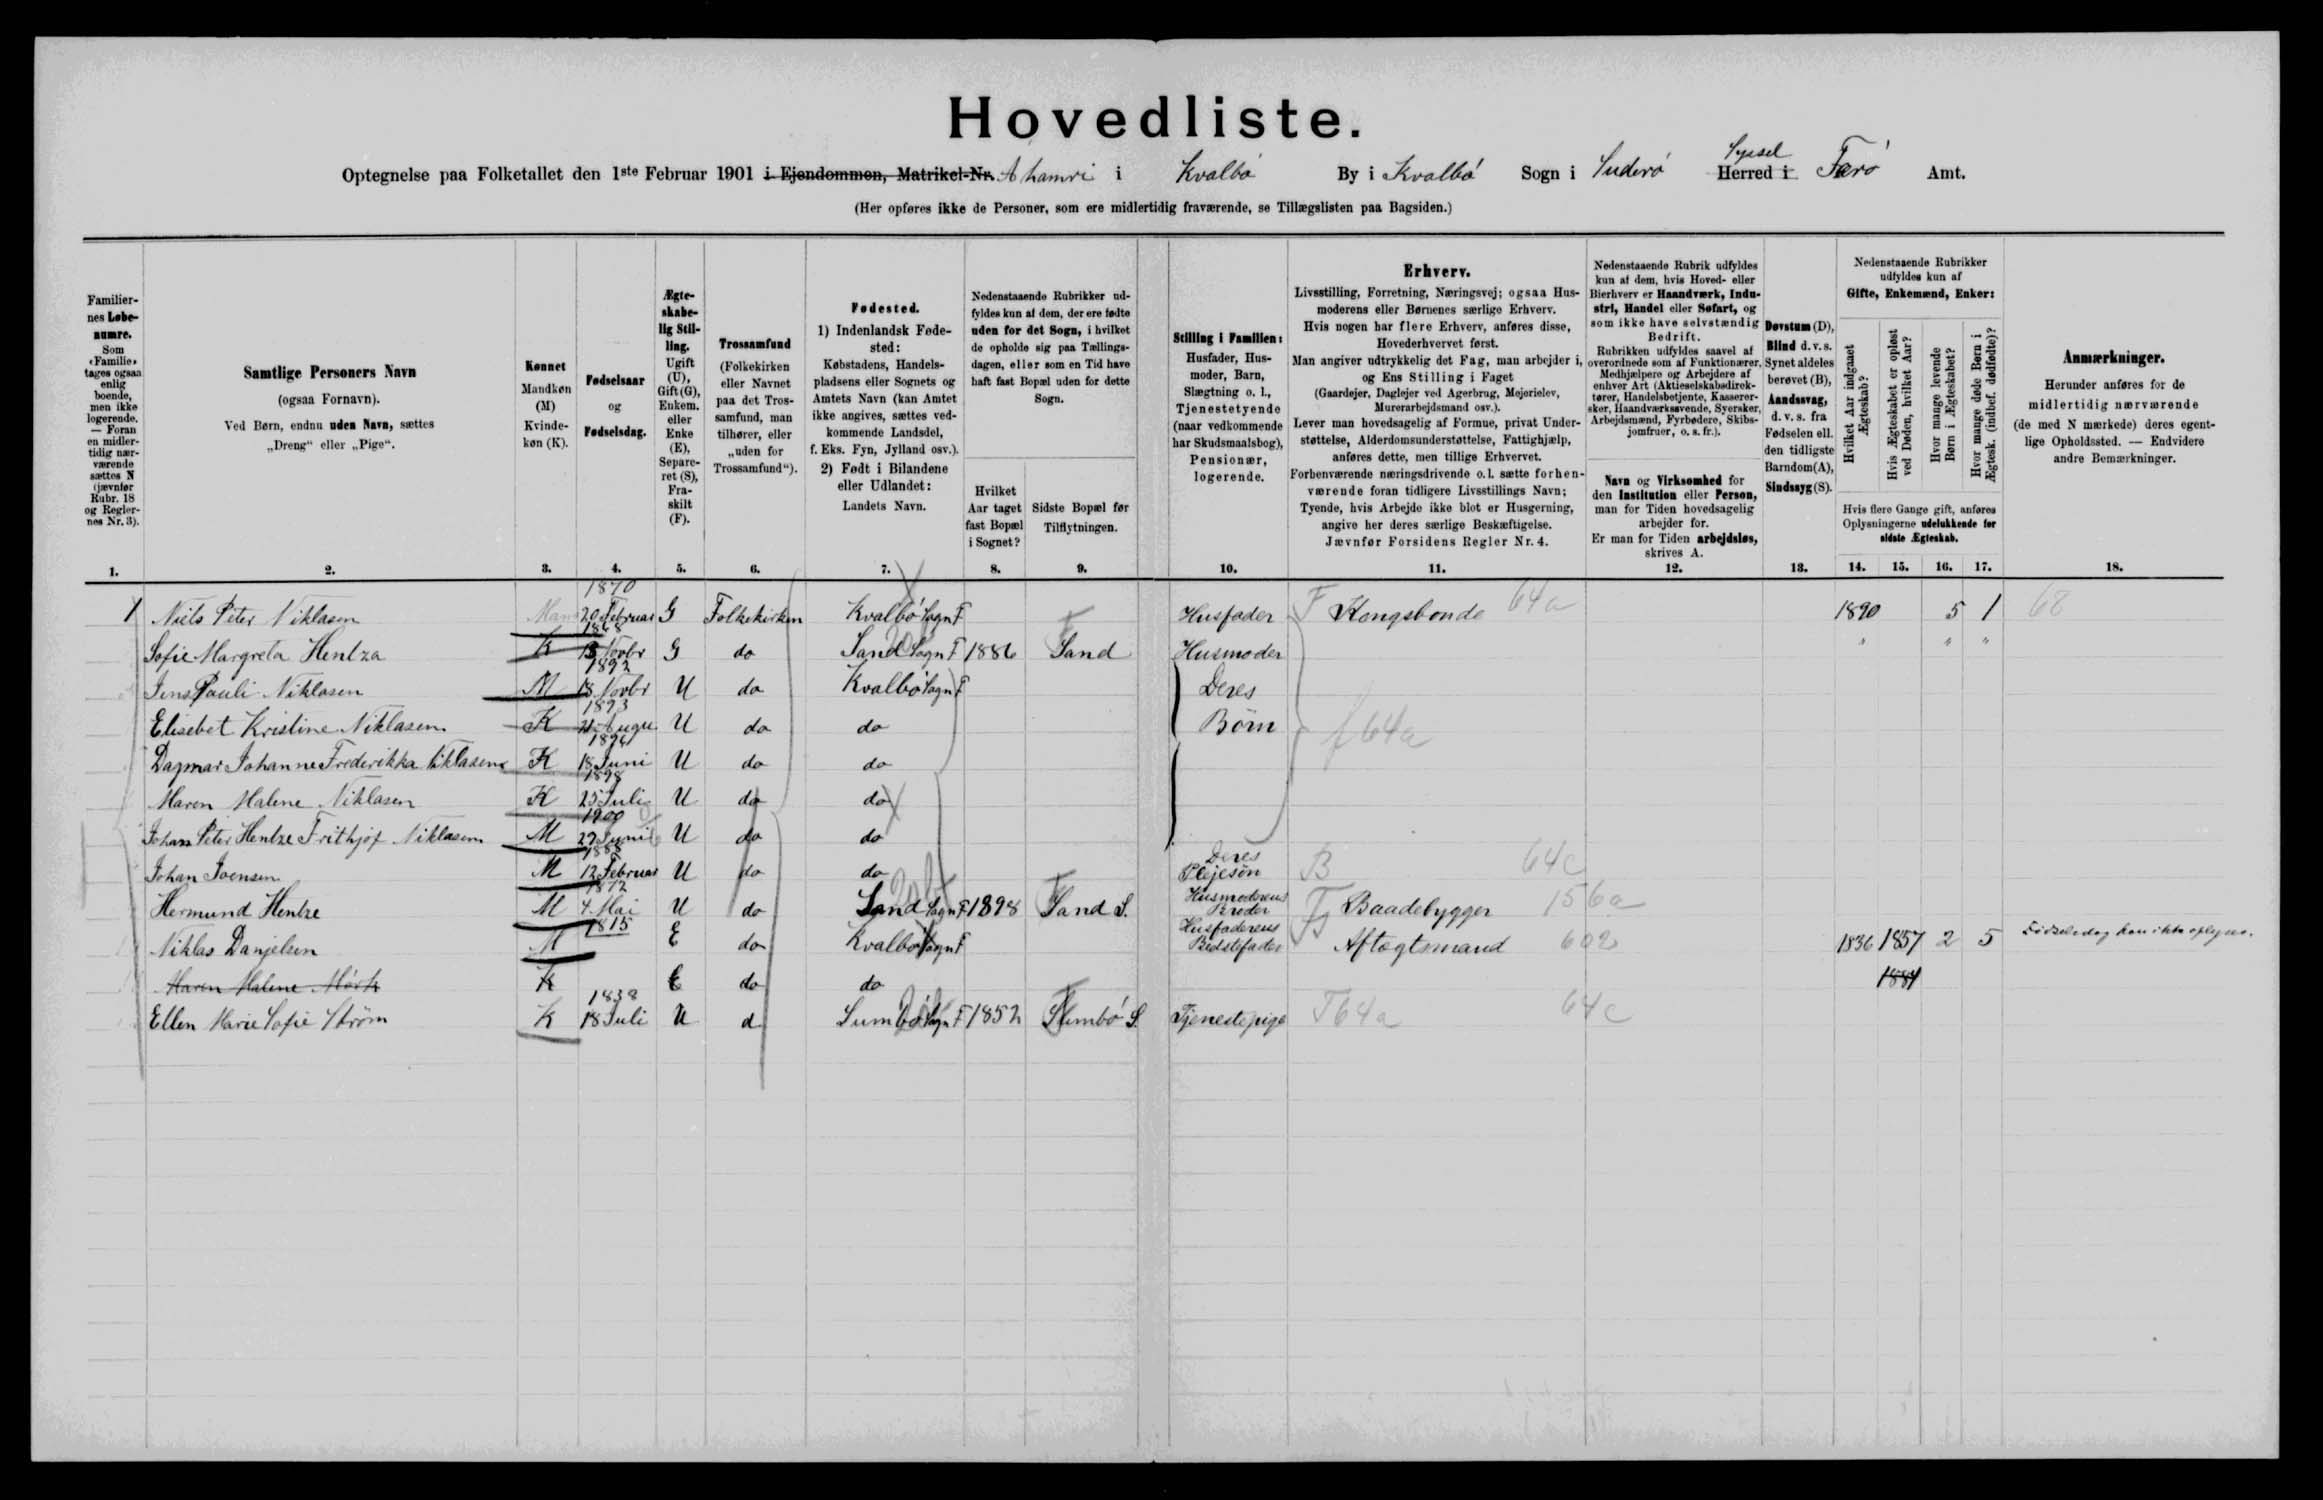 Hovedliste.
Optegnelse paa Folketallet den 1ste Februar 1901 i Ejendommen, Matrikel-Nr. A hamri i Kvalbø By i Kvalbø Sogn i Suderø Syssel Herred i Færø Amt.
(Her opføres ikke de Personer, som ere midlertidig fraværende, se Tillægslisten paa Bagsiden.)
Familiernes Løbenumre. Som «Familie» tages ogsaa enlig boende, men ikke logerende. — Foran en midlertidig nærværende sættes N (jævnfør Rubr. 18 og Reglernes Nr. 3).
Samtlige Personers Navn (ogsaa Fornavn). Ved Børn, endnu uden Navn, sættes „Dreng“ eller „Pige“.
Kønnet Mandkøn (M) Kvindekøn (K).
Fødselsaar og Fødselsdag.
Ægteskabelig Stilling. Ugift (U), Gift (G), Enkem. eller Enke (E), Separeret (S), Fraskilt (F).
Trossamfund (Folkekirken eller Navnet paa det Trossamfund, man tilhører, eller „uden for Trossamfund“).
Fødested. 1) Indenlandsk Fødested: Købstadens, Handelspladsens eller Sognets og Amtets Navn (kan Amtet ikke angives, sættes vedkommende Landsdel, f. Eks. Fyn, Jylland osv.). 2) Født i Bilandene eller Udlandet: Landets Navn.
Nedenstaaende Rubrikker udfyldes kun af dem, der ere fødte uden for det Sogn, i hvilket de opholde sig paa Tællingsdagen, eller som en Tid have haft fast Bopæl uden for dette Sogn.
Hvilket Aar taget fast Bopæl i Sognet?
Sidste Bopæl før Tilflytningen.
Stilling i Familien: Husfader, Husmoder, Barn, Slægtning o. l., Tjenestetyende (naar vedkommende har Skudsmaalsbog), Pensionær, logerende.
Erhverv. Livsstilling, Forretning, Næringsvej; ogsaa Husmoderens eller Børnenes særlige Erhverv. Hvis nogen har flere Erhverv, anføres disse, Hovederhvervet først. Man angiver udtrykkelig det Fag, man arbejder i, og Ens Stilling i Faget (Gaardejer, Daglejer ved Agerbrug, Mejerielev, Murerarbejdsmand osv.). Lever man hovedsagelig af Formue, privat Understøttelse, Alderdomsunderstøttelse, Fattighjælp, anføres dette, men tillige Erhvervet. Forhenværende næringsdrivende o. l. sætte forhenværende foran tidligere Livsstillings Navn; Tyende, hvis Arbejde ikke blot er Husgerning, angive her deres særlige Beskæftigelse. Jævnfør Forsidens Regler Nr. 4.
Nedenstaaende Rubrik udfyldes kun af dem, hvis Hoved- eller Bierhverv er Haandværk, Industri, Handel eller Søfart, og som ikke have selvstændig Bedrift. Rubrikken udfyldes saavel af overordnede som af Funktionærer, Medhjælpere og Arbejdere af enhver Art (Aktieselskabsdirektører, Handelsbetjente, Kasserersker, Haandværkssvende, Syersker, Arbejdsmænd, Fyrbødere, Skibsjomfruer, o. s. fr.).
Navn og Virksomhed for den Institution eller Person, man for Tiden hovedsagelig arbejder for. Er man for Tiden arbejdsløs, skrives A.
Døvstum (D), Blind d. v. s. Synet aldeles berøvet (B), Aandssvag, d. v. s. fra Fødselen ell. den tidligste Barndom (A), Sindssyg (S).
Nedenstaaende Rubrikker udfyldes kun af Gifte, Enkemænd, Enker:
Hvilket Aar indgaaet Ægteskab?
Hvis Ægteskabet er opløst ved Døden, hvilket Aar?
Hvor mange levende Børn i Ægteskabet?
Hvor mange døde Børn i Ægtesk. (indbef. dødfødte)?
Hvis flere Gange gift, anføres Oplysningerne udelukkende for sidste Ægteskab.
Anmærkninger. Herunder anføres for de midlertidig nærværende (de med N mærkede) deres egentlige Opholdssted. — Endvidere andre Bemærkninger.
1. 2. 3. 4. 5. 6. 7. 8. 9. 10. 11. 12. 13. 14. 15. 16. 17. 18.
1 Niels Peter Niklasen Mand 1870 20 Februar G Folkekirken Kvalbø Sogn F Husfader F Kongsbonde 64a 1890 5 1 68
Sofie Margreta Hentza K 1868 13 Novbr G do Sand Sogn F 1886 Sand Husmoder " " "
Jens Pauli Niklasen M 1892 18 Novbr U do Kvalbø Sogn F Deres
Elisebet Kristine Niklasen K 1893 Augu U do do Børn f 64a
Dagmar Johanne Frederikka Niklasen K 1896 18 Juni U do do
Maren Malene Niklasen K 1898 25 Juli U do do
Johan Peter Hentze Frithjof Niklasen M 1900 29 Juni U do do
Johan Joensen M 1888 12 Februar U do do Deres Plejesøn B 64c
Hermund Hentze M 1872 4. Mai U do Sand Sogn F 1898 Sand S. Husmoderens Broder F Baadebygger 156a
Niklas Danjelsen M 1815 E do Kvalbø Sogn F Husfaderens Bedstefader Aftægtsmand 602 1836 1857 2 5 Fødselsdag kan ikke oplyses.
Maren Malene Mørk K E do do 1881
Ellen Marie Sofie Strøm K 1838 18 Juli U d Sumbø Sogn F 1852 Sumbø S. Tjenestepige T 64a 64c